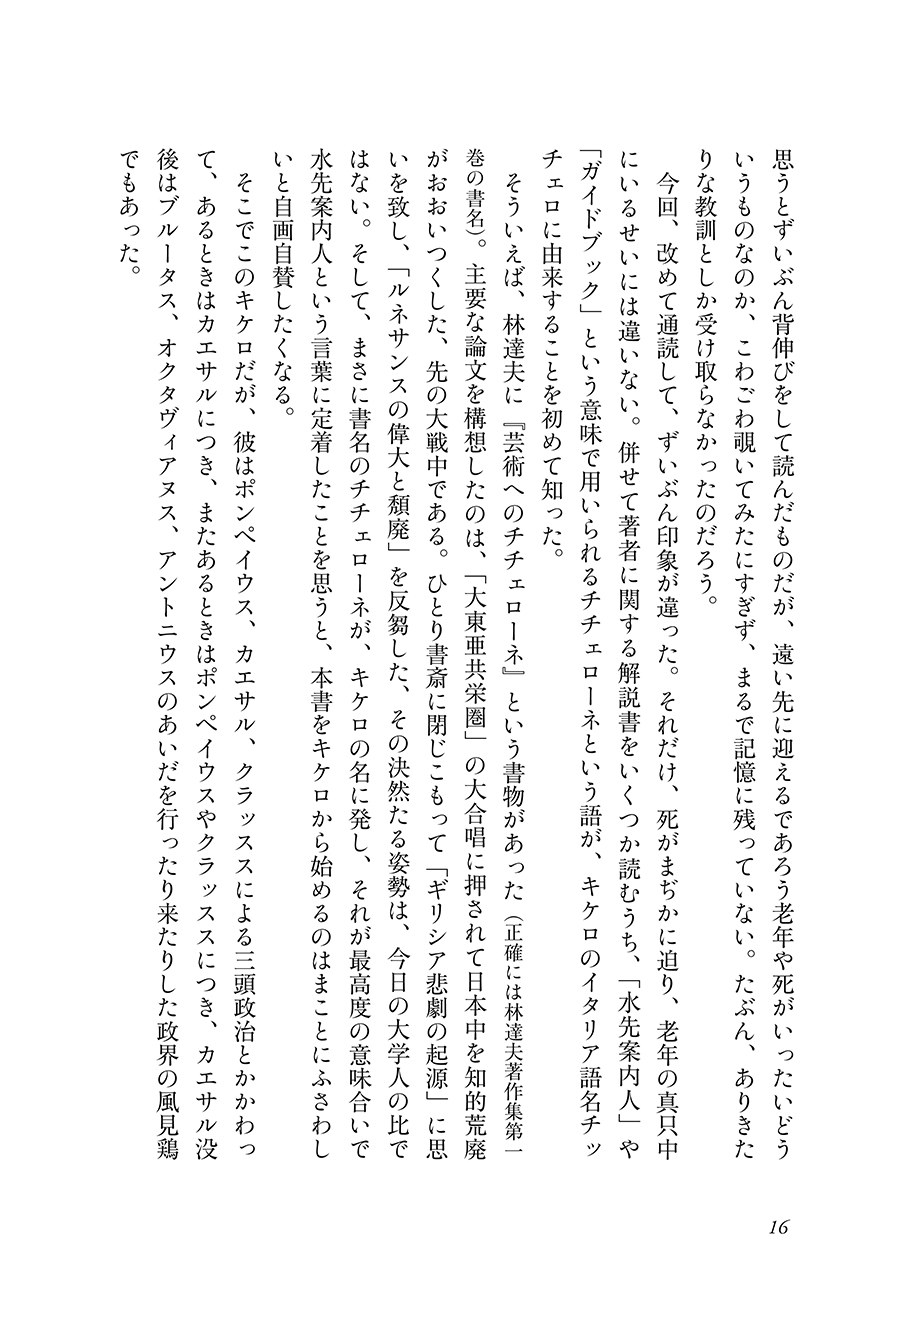 思うとずいぶん背伸びをして読んだものだが、遠い先に迎えるであろう老年や死がいったいどう
いうものなのか、こわごわ覗いてみたにすぎず、まるで記憶に残っていない。たぶん、ありきた
りな教訓としか受け取らなかったのだろう。
今回、改めて通読して、ずいぶん印象が違った。それだけ、死がまぢかに迫り、老年の真只中
にいるせいには違いない。併せて著者に関する解説書をいくつか読むうち、「水先案内人」や
「ガイドブック」という意味で用いられるチチェローネという語が、キケロのイタリア語名チッ
チェロに由来することを初めて知った。
そういえば、林達夫に『芸術へのチチェローネ』という書物があった（正確には林達夫著作集第一
巻の書名）。主要な論文を構想したのは、「大東亜共栄圏」の大合唱に押されて日本中を知的荒廃
がおおいつくした、先の大戦中である。ひとり書斎に閉じこもって「ギリシア悲劇の起源」に思
いを致し、「ルネサンスの偉大と頽廃」を反芻した、その決然たる姿勢は、今日の大学人の比で
はない。そして、まさに書名のチチェローネが、キケロの名に発し、それが最高度の意味合いで
水先案内人という言葉に定着したことを思うと、本書をキケロから始めるのはまことにふさわし
いと自画自賛したくなる。
そこでこのキケロだが、彼はポンペイウス、カエサル、クラッススによる三頭政治とかかわっ
て、あるときはカエサルにつき、またあるときはポンペイウスやクラッススにつき、カエサル没
後はブルータス、オクタヴィアヌス、アントニウスのあいだを行ったり来たりした政界の風見鶏
でもあった。
16